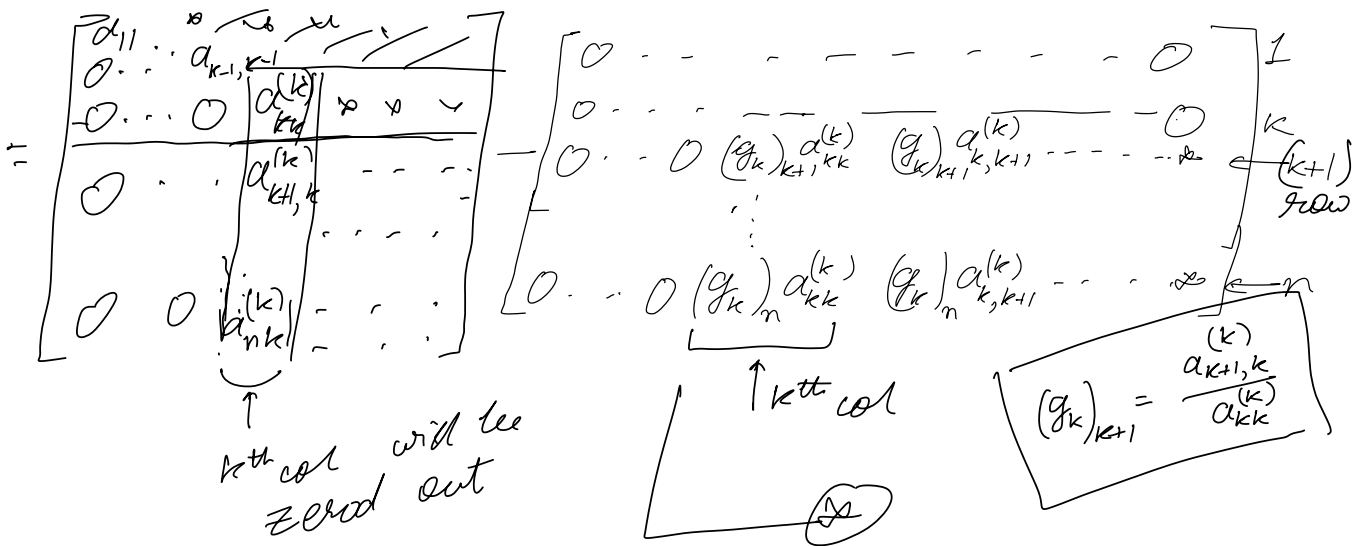 a_{11} ··· a_{k-1,k-1}
0 ··
0 ··· 0 a_{kk}^{(k)} × × ×
= 0 ·· a_{k+1,k}^{(k)} ----
0 0 a_{nk}^{(k)}
− 0 ·· - - - - - - 0 1
0 - - - — — — 0 k
0 ·· 0 (g_k)_{k+1} a_{kk}^{(k)} (g_k)_{k+1} a_{k,k+1}^{(k)} ------ × ← (k+1) row
0 ·· 0 (g_k)_n a_{kk}^{(k)} (g_k)_n a_{k,k+1}^{(k)} ---- × ← n
↑ kth col will be
zerod out
↑ kth col
(g_k)_{k+1} = a_{k+1,k}^{(k)} / a_{kk}^{(k)}
*